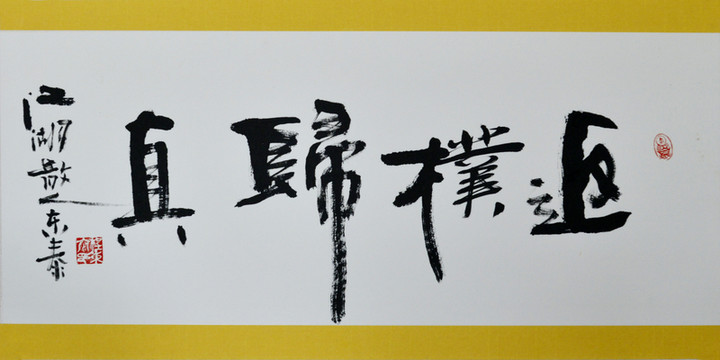 返樸歸真
江湖散人东泰